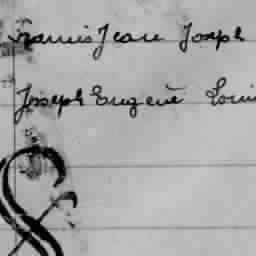 Francis Jean Joseph
Joseph Eugène Loui